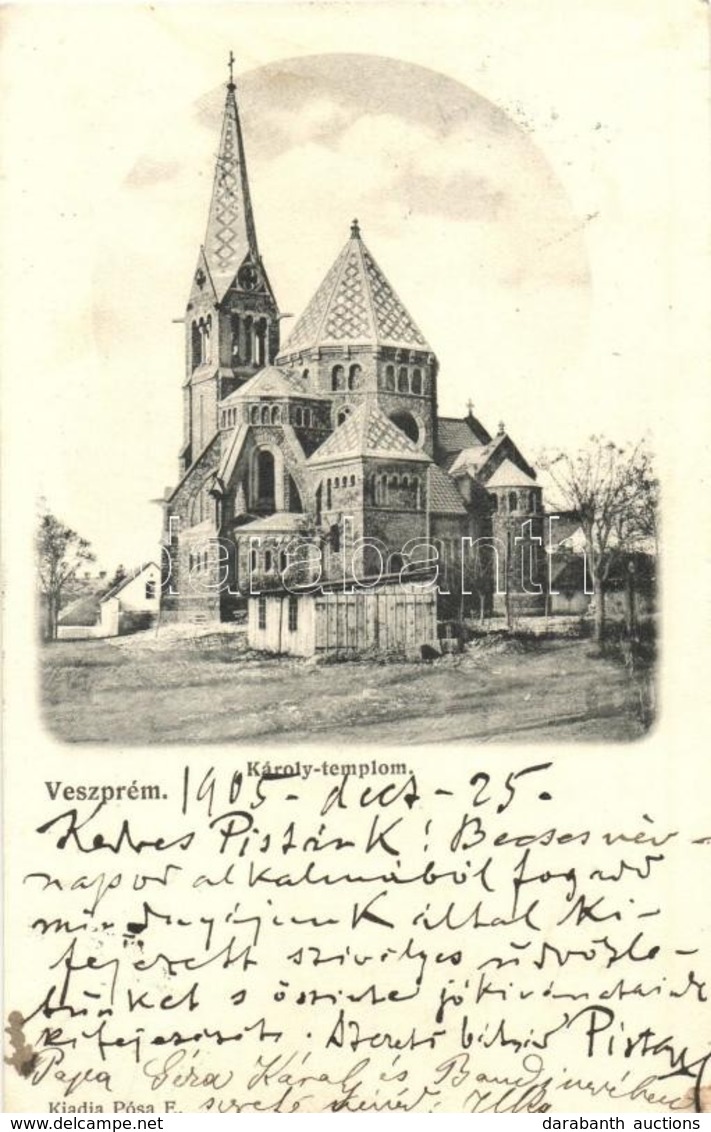 darabanth
Károly-templom.
Veszprém. 1905 - dect - 25.
Kedves Pistánk! Becses név-
napod alkalmából fogadd
mindnyájunk által ki-
fejezett szivélyes üdvözle-
tünket s őszinte jókivánataink
kifejezését. Szerető bátyád Pista
Papa Géza Károly és Bandi nevében
szerető Ilka
Kiadja Pósa E.
darabanth auctions